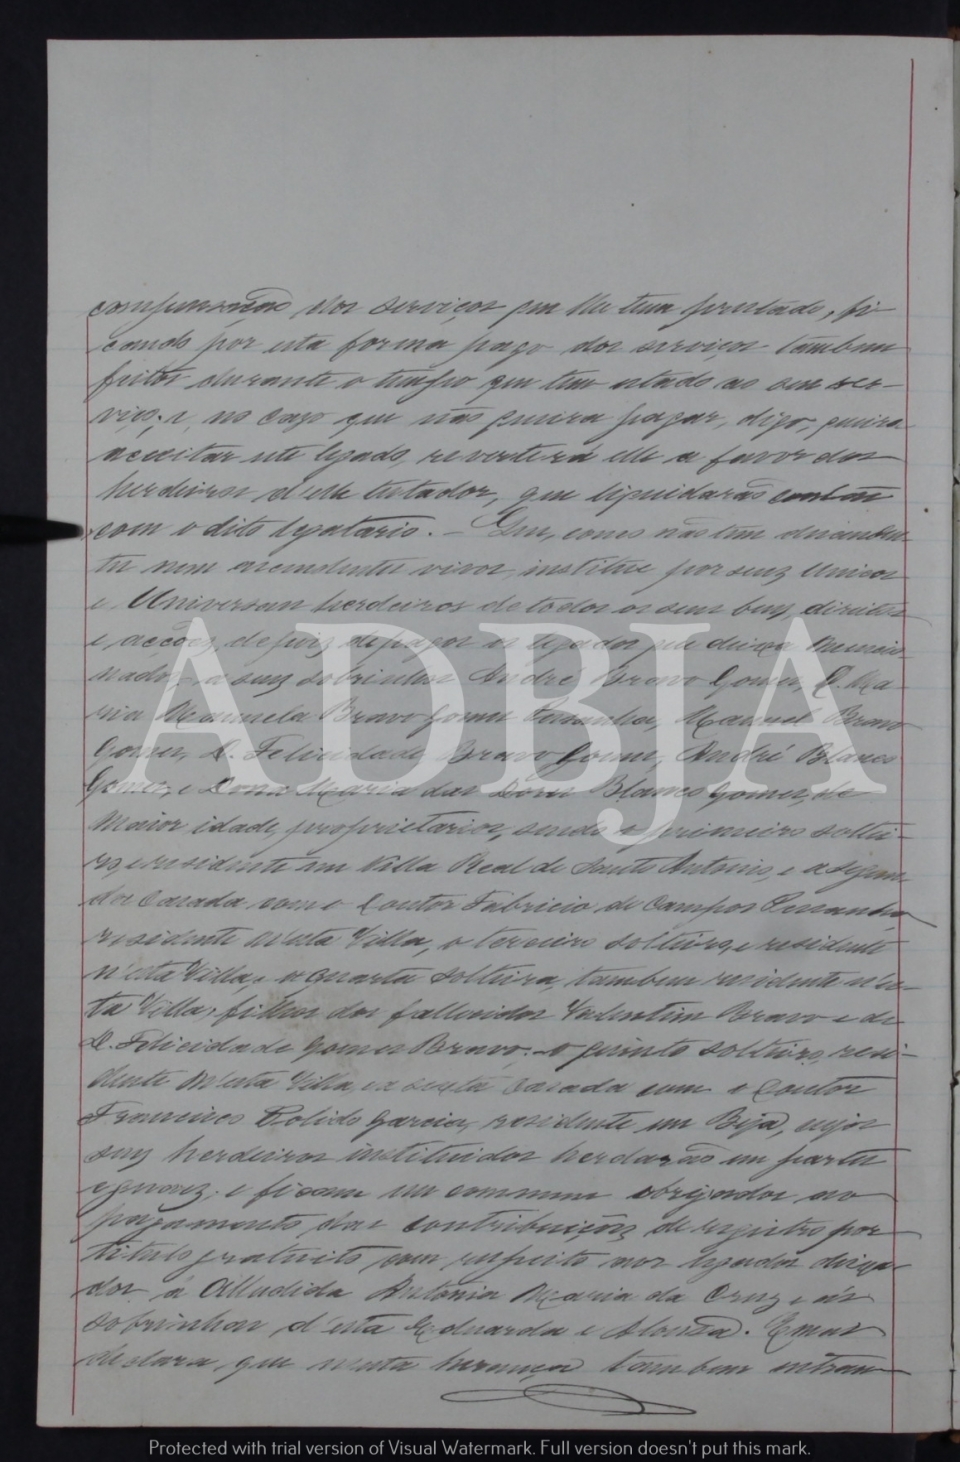 compensação dos serviços que lhe tem prestado, fi-
cando por esta forma pago dos serviços tambem
feitos durante o tempo que tem estado ao seu ser-
viço; e, no caso que não queira pagar, digo, queira
acceitar este legado, reverterá elle a favor dos
herdeiros d'elle testador, que liquidarão
com o dito legatario. — Que, como não tem descenden-
tes nem ascendentes vivos, institue por seus Unicos
e Universaes herdeiros de todos os seus bens, direitos
e acções, depois de pagos os legados que deixa mencio-
nados, a seus sobrinhos André Bravo Gomes, D. Ma-
ria Manuela Bravo Gomes Pessanha, Manuel Bravo
Gomes, D. Felicidade Bravo Gomes, André Blanco
Gomes, e Dona Maria das Dores Blanco Gomes, de
maior idade, proprietarios, sendo o primeiro soltei-
ro, e residente em Villa Real de Santo Antonio, e a segun-
da casada com o Doutor Fabricio de Campos Pessanha
residente n'esta Villa, o terceiro solteiro, e residente
n'esta Villa, e a quarta solteira, tambem residente n'es-
ta Villa, filhos dos fallecidos Valentim Bravo e de
D. Felicidade Gomes Bravo; o quinto solteiro, resi-
dente n'esta Villa, e a sexta casada com o Doutor
Francisco Pulido Garcia, residente em Beja, cujos
seus herdeiros instituidos herdarão em partes
eguaes; e ficam em commum obrigados ao
pagamento das contribuições de registro por
titulo gratuito com respeito aos legados deixa-
dos á alludida Antonia Maria da Cruz e ás
sobrinhas d'esta Eduarda e . E mais
declara, que n'esta herança tambem entram
ADBJA
Protected with trial version of Visual Watermark. Full version doesn't put this mark.